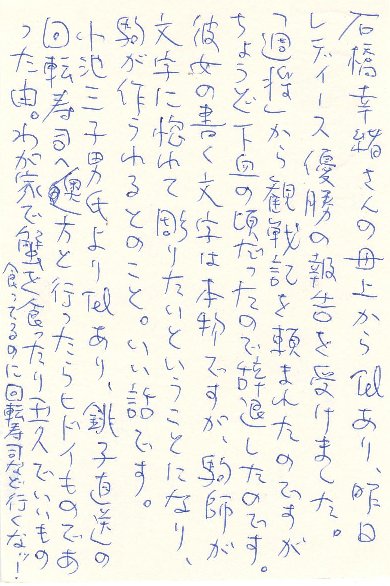 石橋幸緒さんの母上からTelあり、昨日
レディース優勝の報告を受けました。
「週将」から観戦記を頼まれたのですが
ちょうど下血の頃だったので辞退したのです。
彼女の書く文字は本物ですが、駒師が
文字に惚れて彫りたいということになり、
駒が作られるとのこと。いい話です。
小池三子男氏よりTelあり、銚子直送の
回転寿司へ方と行ったらヒドイものであ
った由。わが家で蟹を食ったり でいいもの
食ってるのに回転寿司など行くなッ!